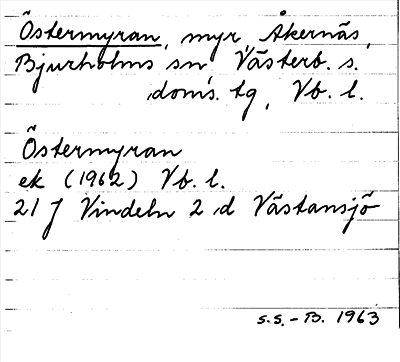 Östermyran, myr, Åkernäs,
Bjurholms sn, Västerb. s.
doms. tg, Vb. l.
Östermyran
ek (1962) Vb. l.
21 J Vindeln 2 d Västansjö
S.S. - B. 1963